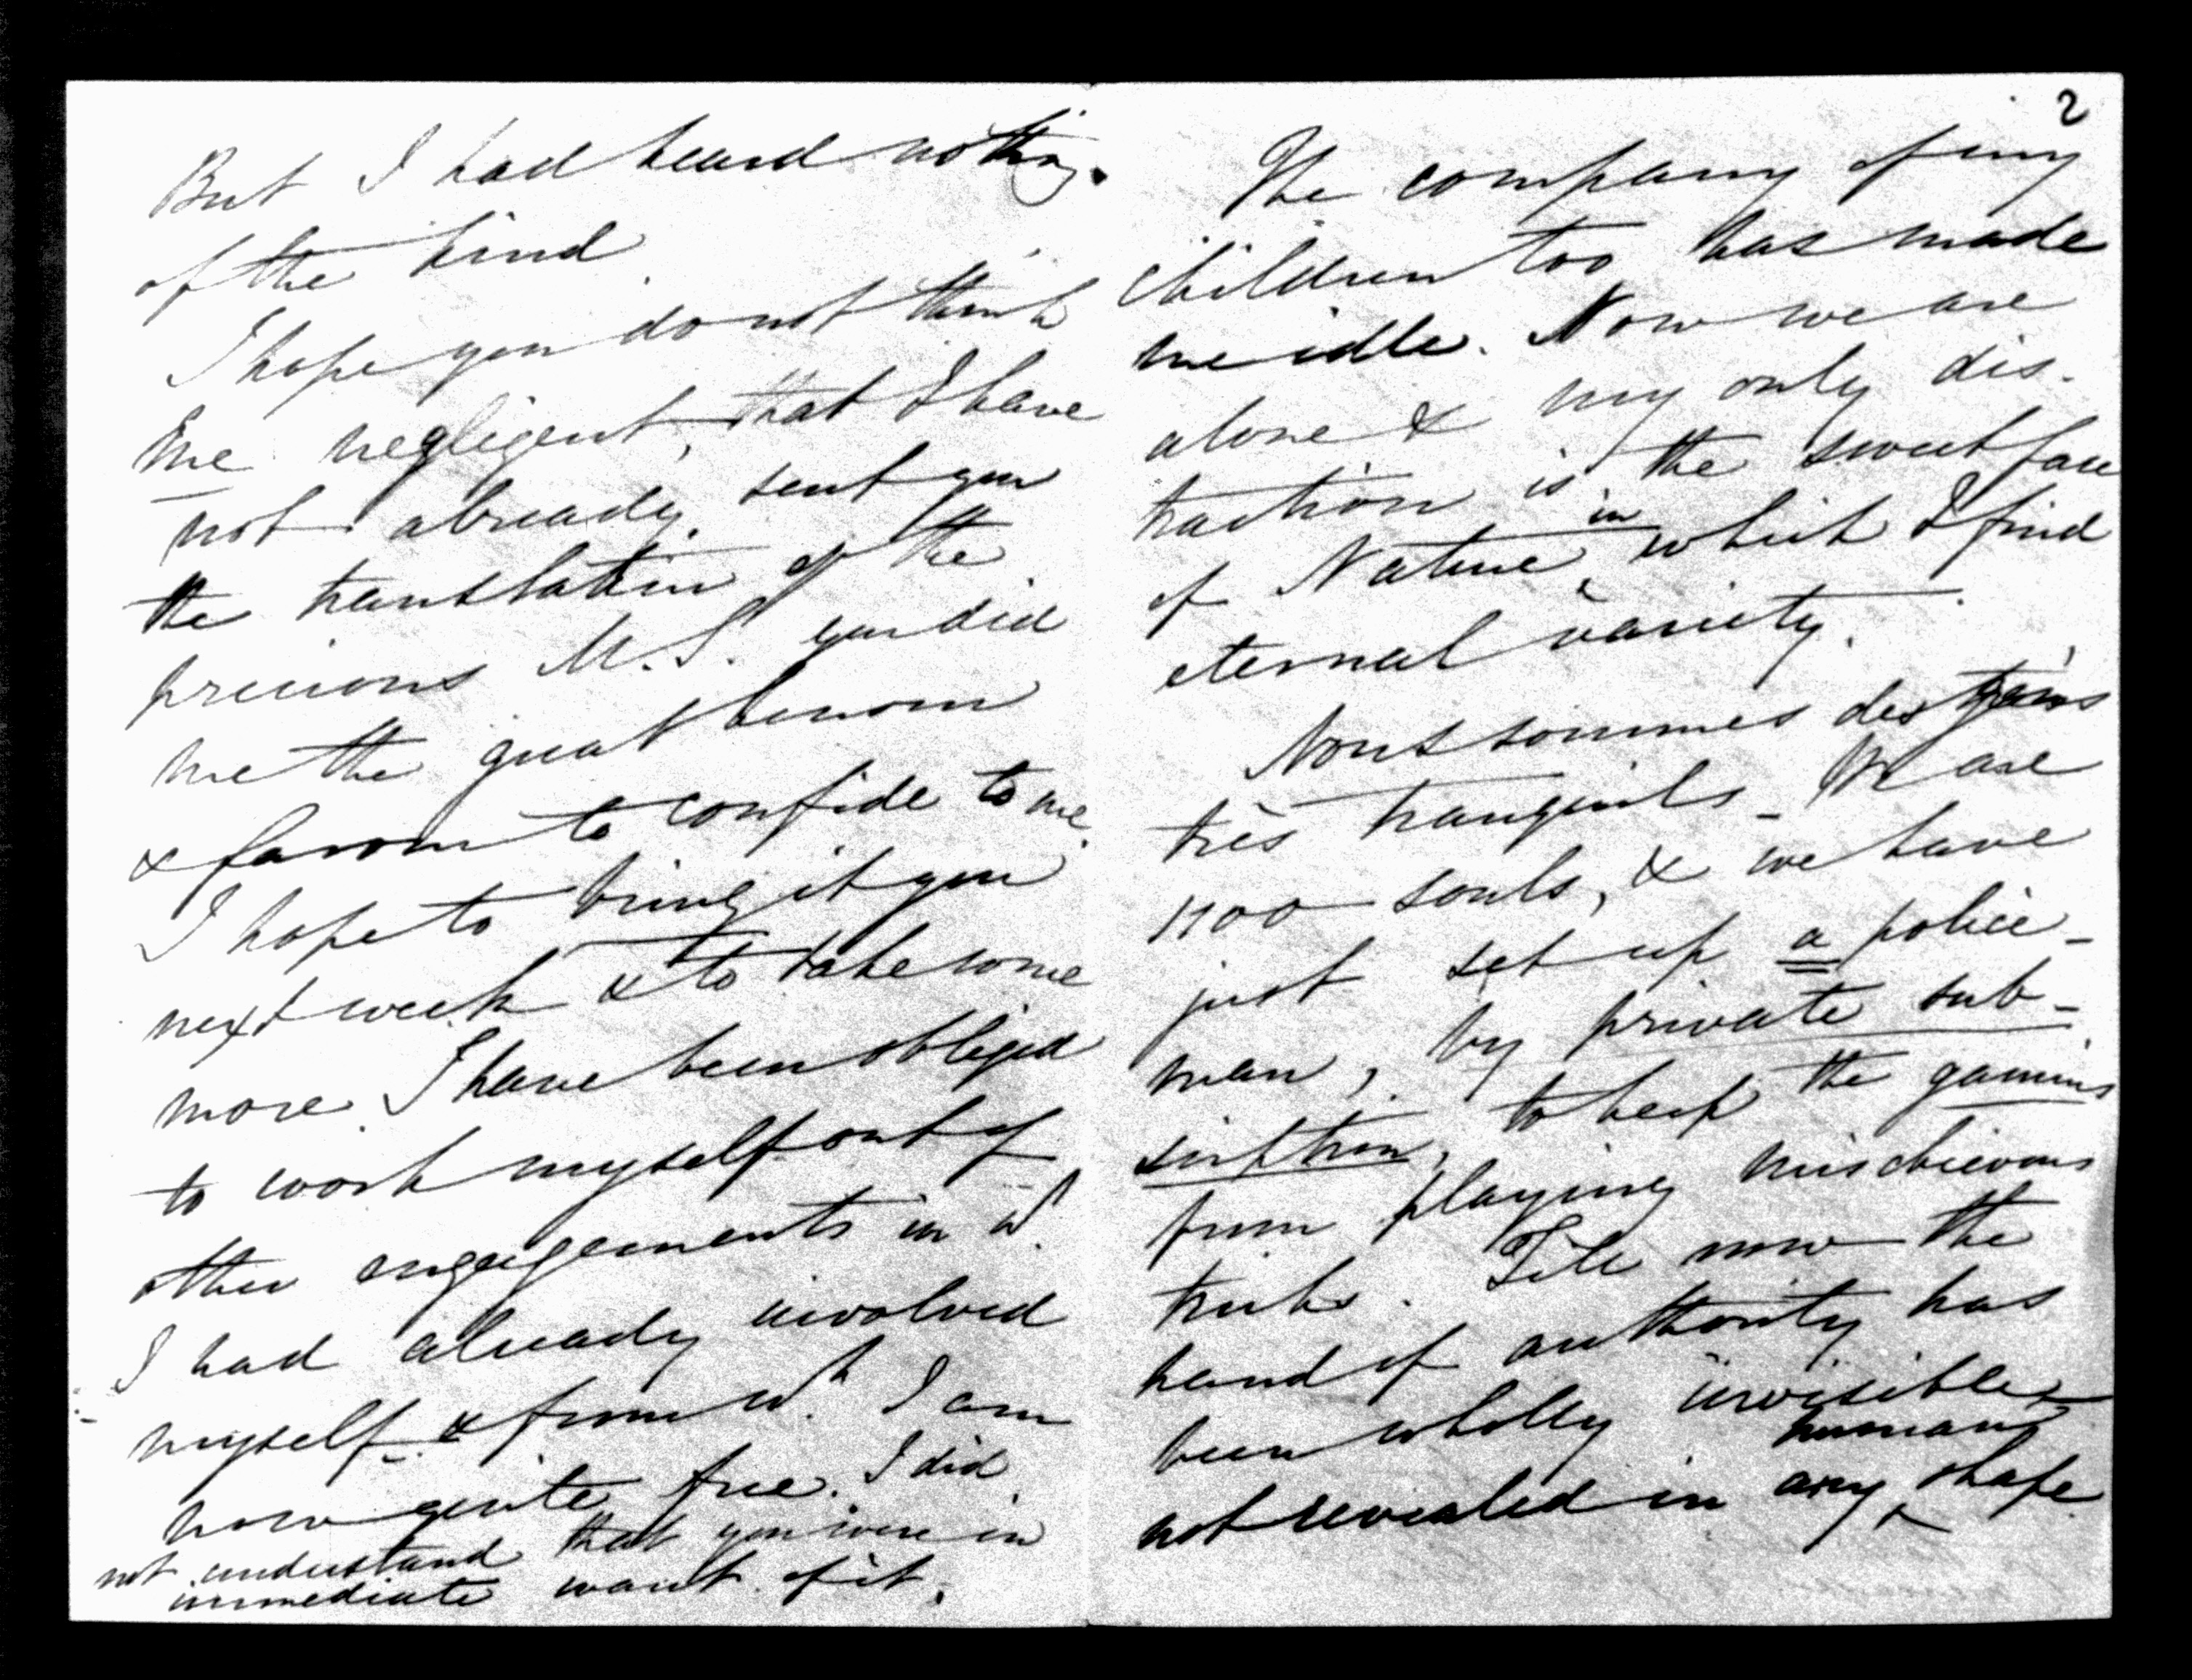 But I had heard nothing
of the kind.
I hope you do not think
me negligent, that I have
not already sent you
the translation of the
precious M.S. you did
me the great honour
& favour to confide to me.
I hope to bring it you
next week & to take some
more. I have been obliged
to work myself out of
other engagements in wh.
I had already involved
myself & from wh. I am
now quite free. I did
not understand that you were in
immediate want of it.
2
The company of my
children too has made
me idle. Now we are
alone & my only dis-
traction is the sweet face
of Nature in which I find
eternal variety.
Nous sommes des gens
très tranquils - We are
1100 souls, & we have
just set up a police-
man, by private sub-
scription, to keep the gamins
from playing mischievous
tricks. Till now the
hand of authority has
been wholly invisible &
not revealed in any human shape